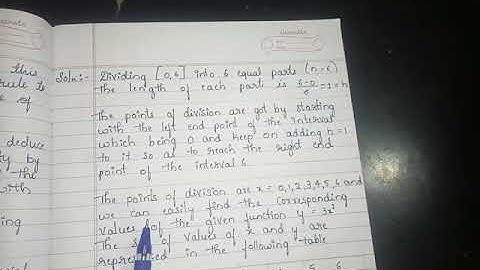 this
rule to
e of
deduce
ty by
the
with
ing
Soln:- Dividing [0,6] into 6 equal parts (n=6)
The length of each part is 6-0/6 =1=h
The points of division are got by starting
with the left end point of the interval
which being 0 and keep on adding h=1
to it so as to reach the right end
point of the interval 6
The points of division are x = 0,1,2,3,4,5,6 and
we can easily find the corresponding
values of the given function y = 3x²
The of values of x and y are
represented in the following table